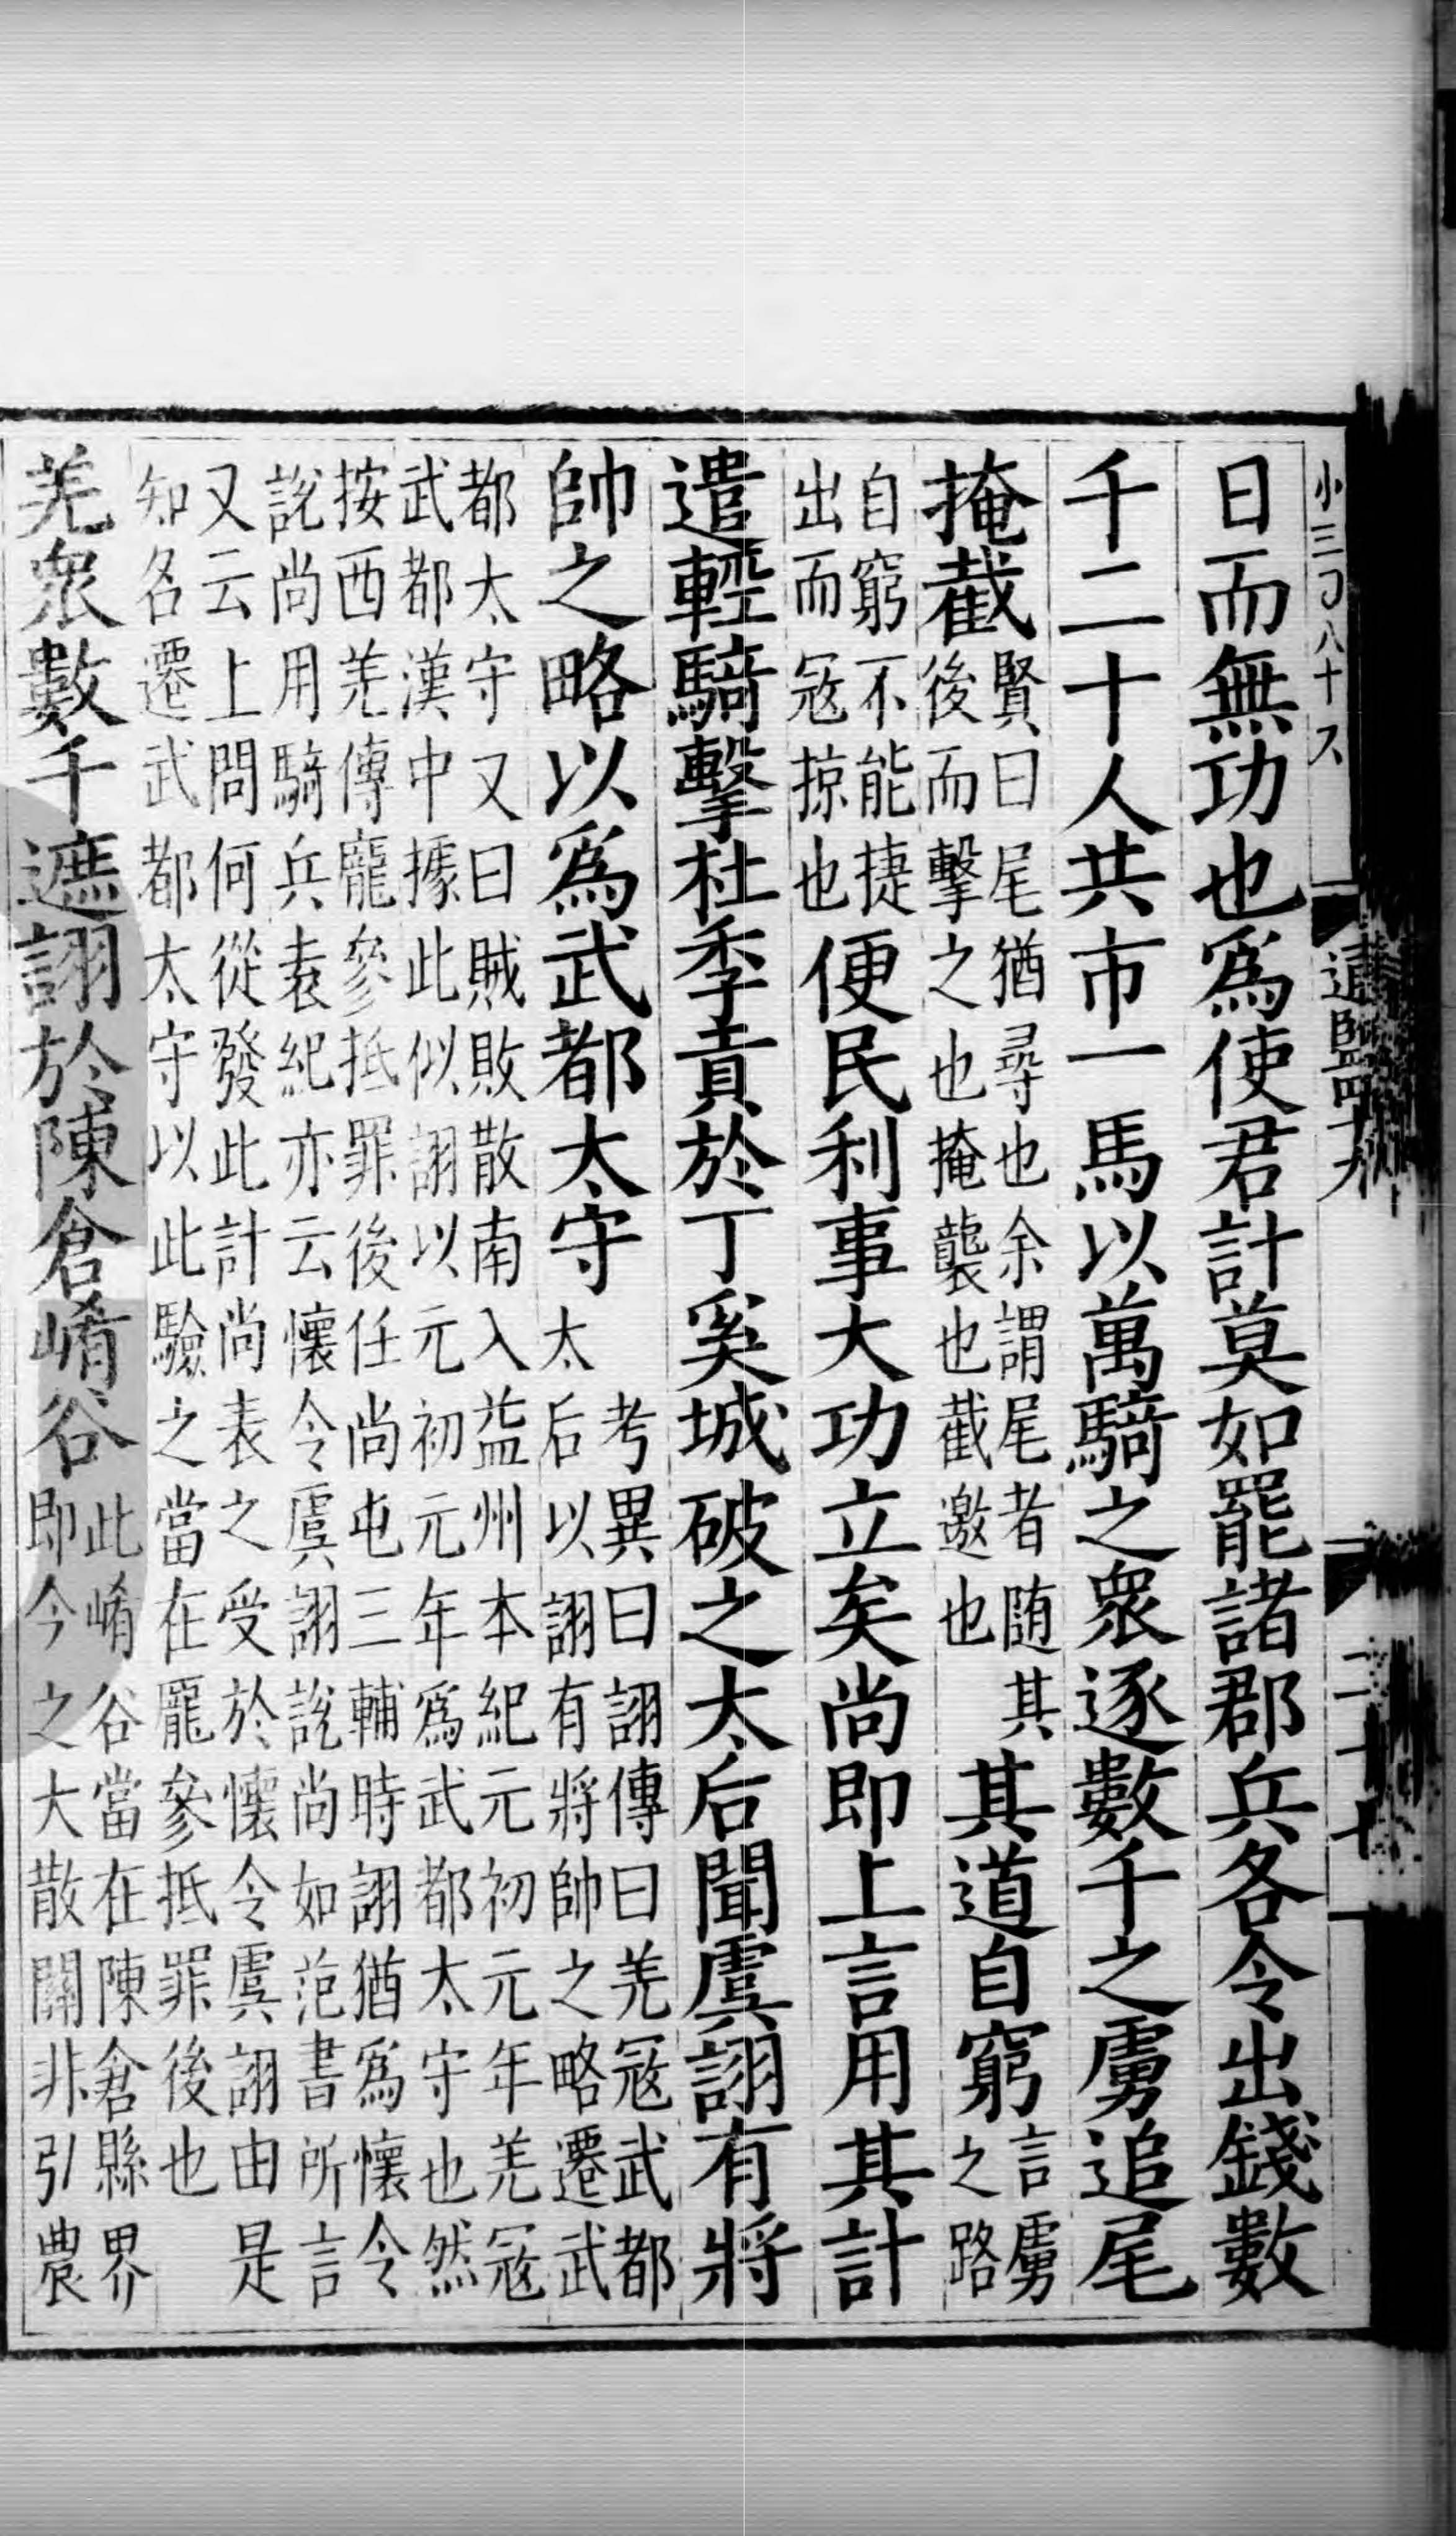 通鑑四十九 二十七
日而無功也爲使君計莫如罷諸郡兵各令出錢數
千二十人共市一馬以萬騎之衆逐數千之虜追尾
掩截賢曰尾猶尋也余謂尾者随其後而擊之也掩襲也截邀也其道自窮言虜之路
自窮不能捷出而冦掠也便民利事大功立矣尚即上言用其計
遣輕騎擊杜季貢於丁奚城破之太后聞虞詡有將
帥之略以爲武都太守考異曰詡傳曰羌冦武都太后以詡有將帥之略遷武
都太守又曰賊敗散南入益州本紀元初元年羌冦
武都漢中據此似詡以元初元年爲武都太守也然
按西羌傳龐參抵罪後任尚屯三輔時詡猶爲懷令
說尚用騎兵袁紀亦云懷令虞詡說尚如范書所言
又云上問何從發此計尚表之受於懷令虞詡由是
知名遷武都太守以此驗之當在罷參抵罪後也
羌衆數千遮詡於陳倉崤谷此崤谷當在陳倉縣界即今之大散關非引農